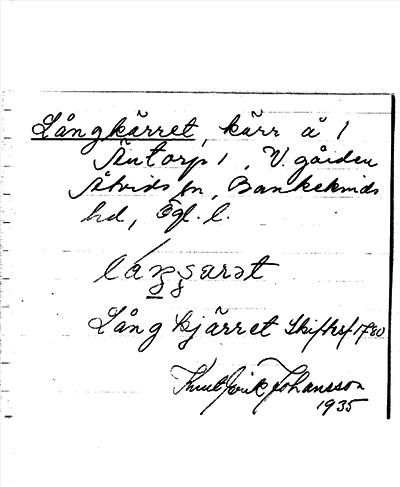 Långkärret, kärr å 1
Äntorp 1, V. gården
Åtvids sn, Bankekinds
hd, Ögl. l.
Långkjärret Skifteskt 1780
Knut Erik Johansson
1935